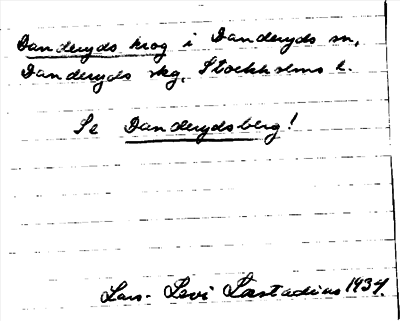 Danderyds krog i Danderyds sn,
Danderyds skg, Stockholms l.
Se Danderydsberg!
Lars-Levi Læstadius 1934.